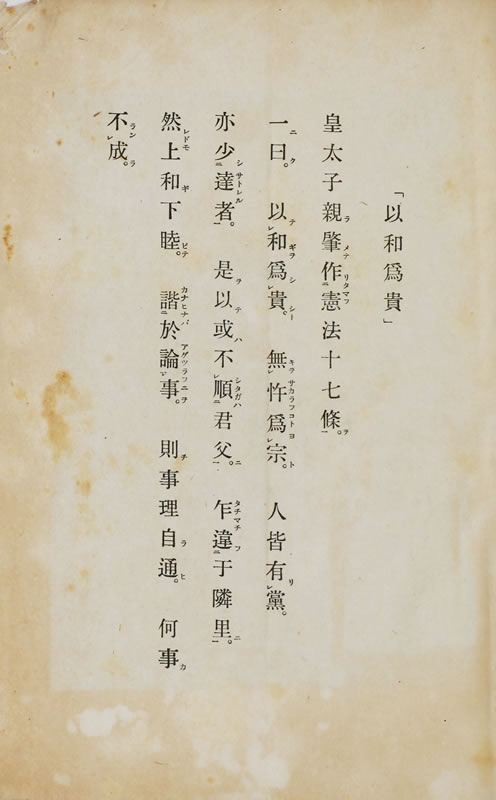 「以和爲貴」
皇太子親肇作憲法十七條。
一曰。以和爲貴。無忤爲宗。人皆有黨。
亦少達者。是以或不順君父。乍違于隣里。
然上和下睦。諧於論事。則事理自通。何事
不成。